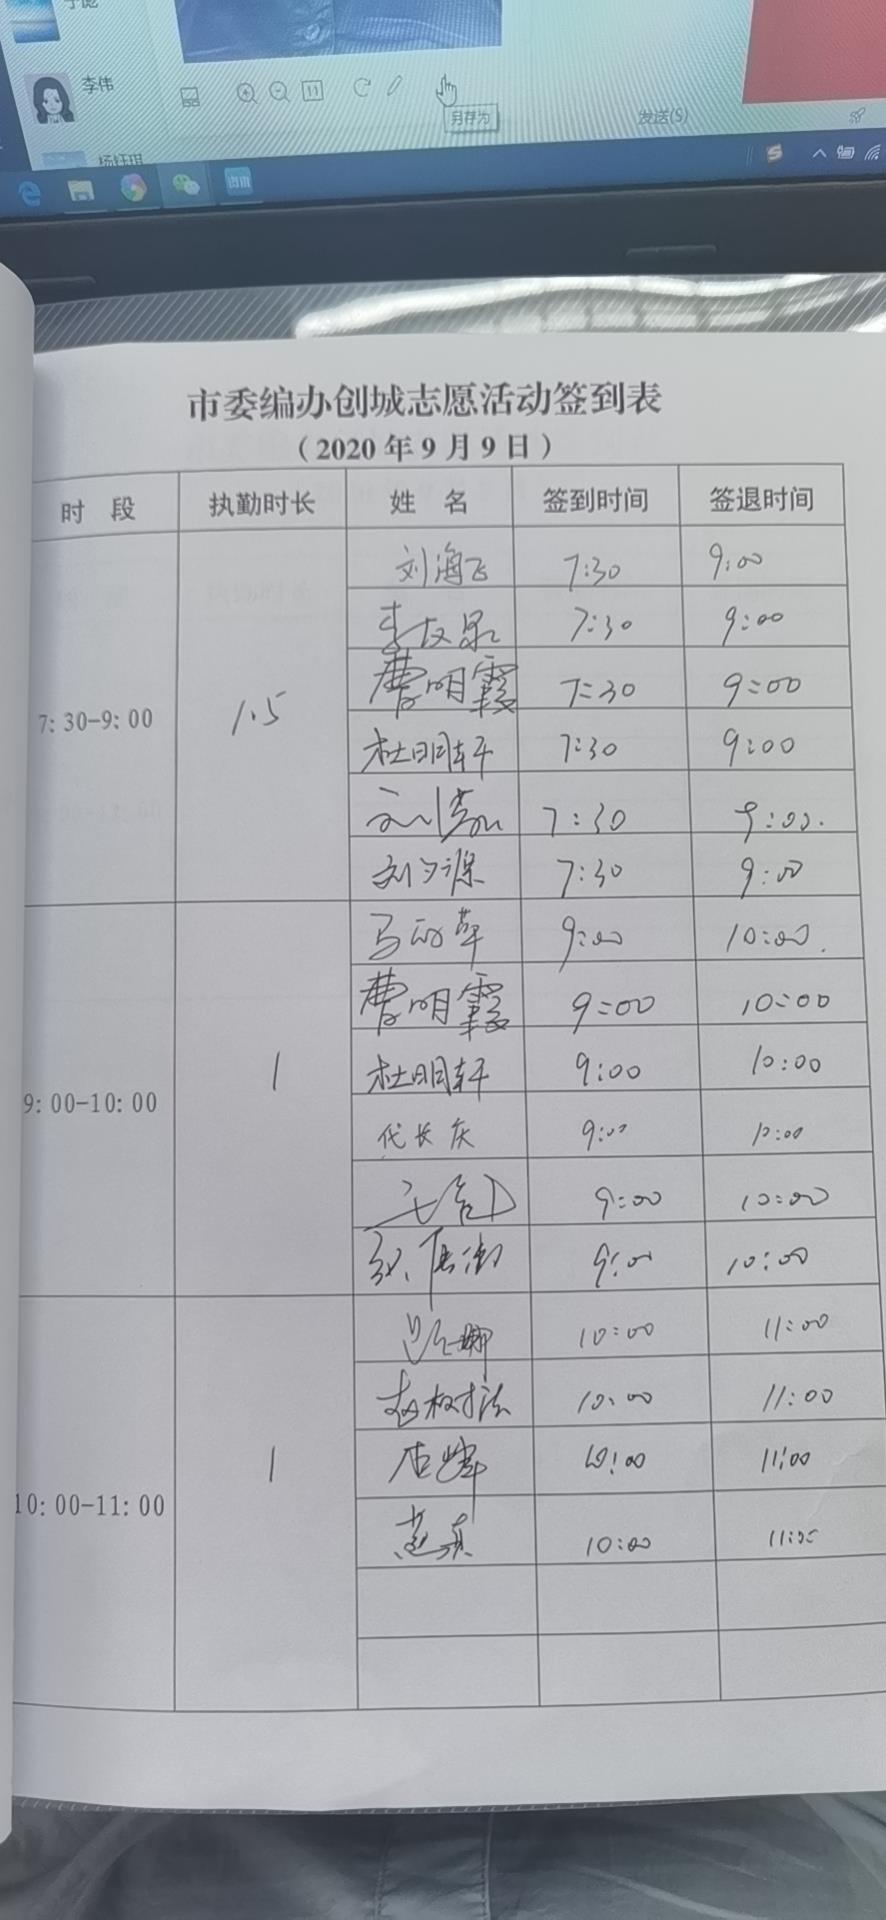 李伟
另存为
发送(S)
市委编办创城志愿活动签到表
（2020年9月9日）
时 段 执勤时长 姓 名 签到时间 签退时间
7:30-9:00 1.5
刘海飞 7:30 9:00
李友泉 7:30 9:00
曹明霞 7:30 9:00
杜明轩 7:30 9:00
7:30 9:00.
刘夕源 7:30 9:00
9:00-10:00 1
马 9:00 10:00.
曹明霞 9:00 10:00
杜明轩 9:00 10:00
代长庆 9:00 10:00
9:00 10:00
9:00 10:00
10:00-11:00 1
10:00 11:00
赵树法 10:00 11:00
10:00 11:00
10:00 11:00